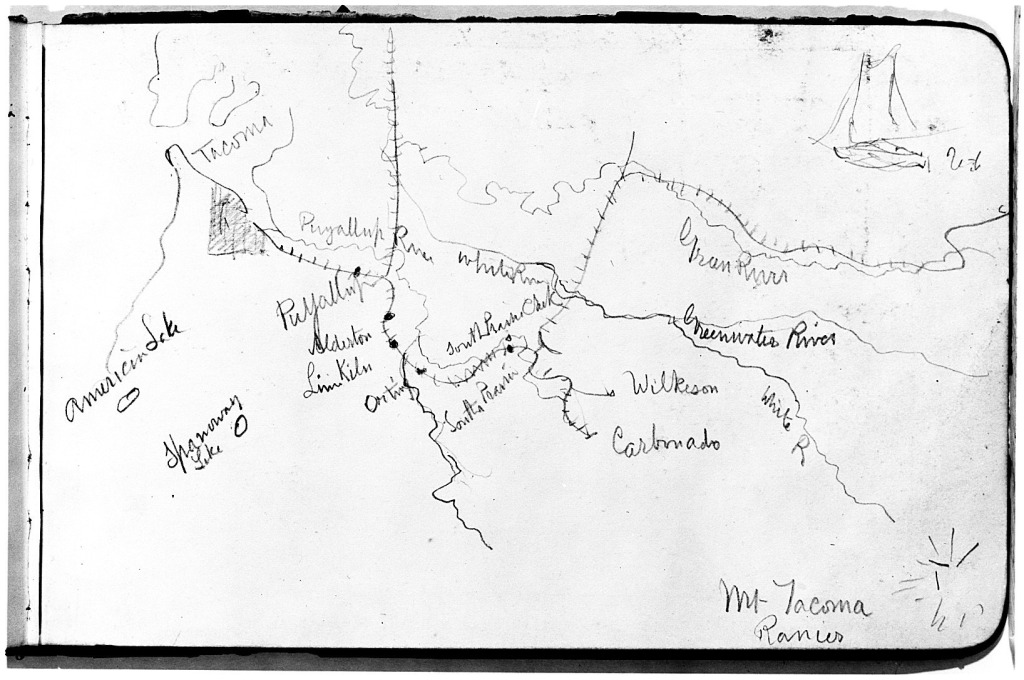 Tacoma
Puyallup River
White River
Green River
Puyallup
South Prairie Creek
Greenwater River
Alderton
American Lake
Lime Kiln
Orting
South Prairie
Wilkeson
White R
Spanaway
Lake
Carbonado
Mt Tacoma
Ranier